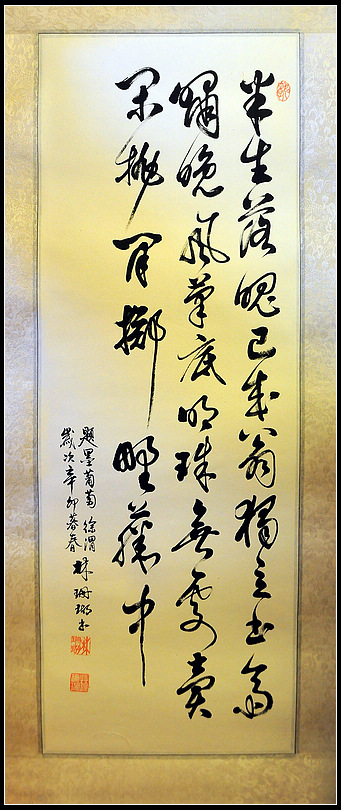 半生落魄已成翁獨立書齋
嘯晚風筆底明珠無處賣
閒拋閒擲野藤中
題墨葡萄 徐渭
歲次辛卯暮春 林珊